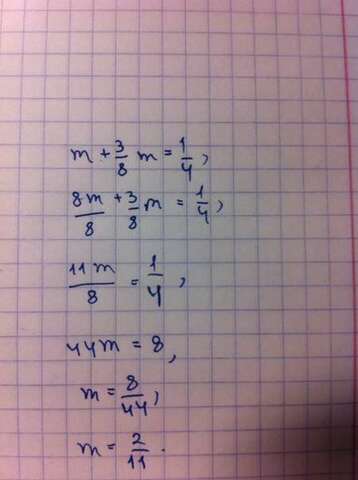 m + 3/8 m = 1/4,
8m/8 + 3/8 m = 1/4,
11m/8 = 1/4,
44m = 8,
m = 8/44,
m = 2/11.